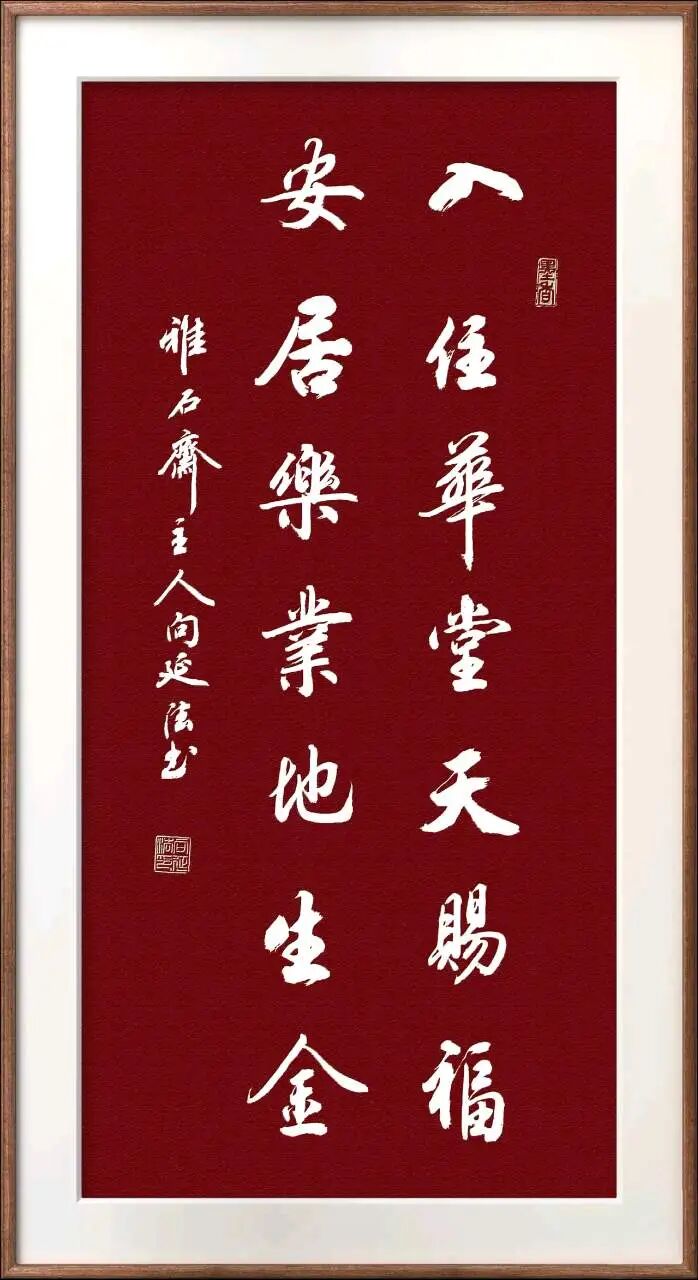 入住華堂天賜福
安居樂業地生金
雅石齋主人向延法书